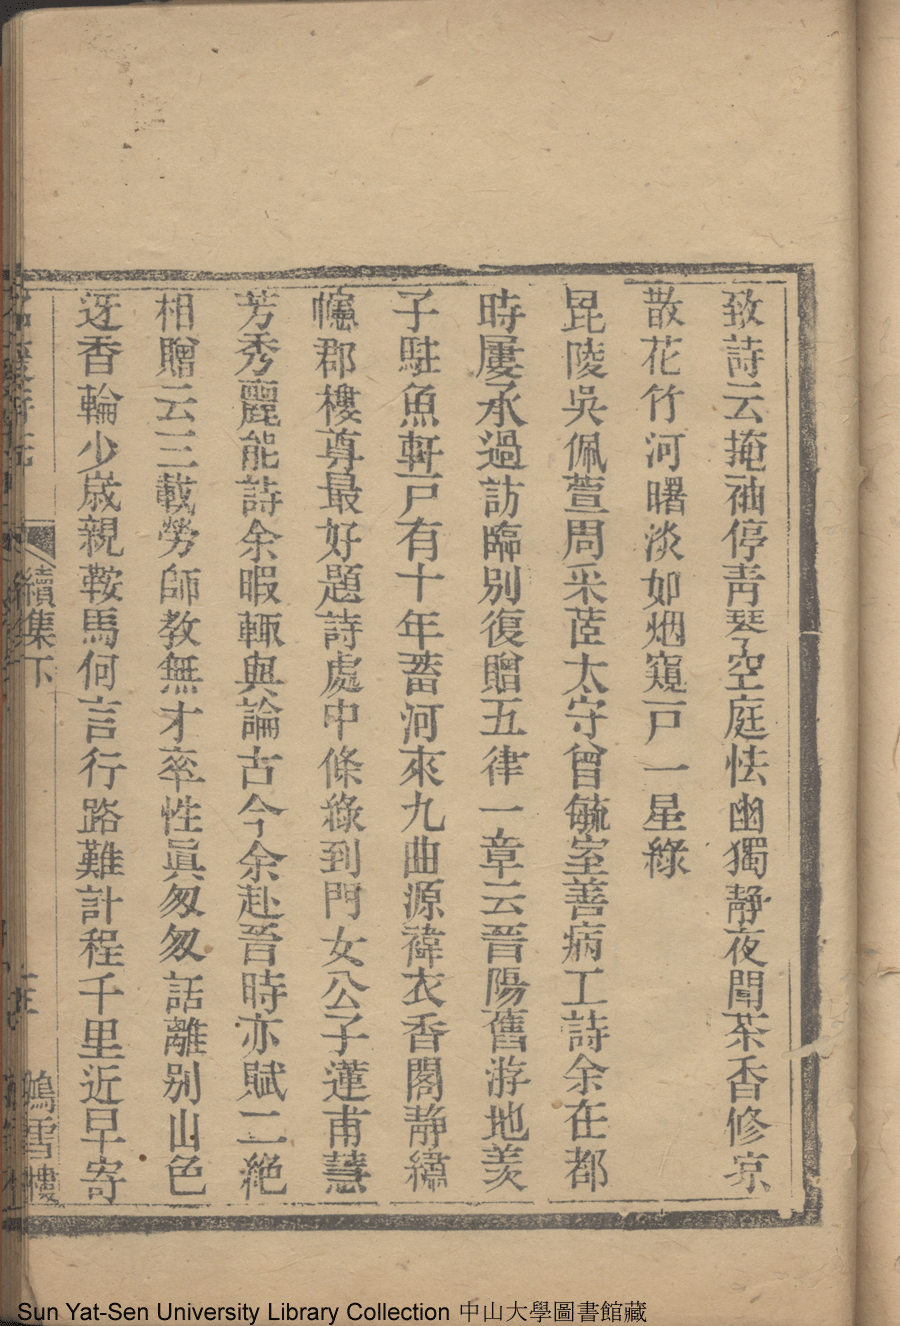 致詩云掩袖停靑琴空庭怯幽獨靜夜聞茶香修凉
散花竹河曙淡如烟窺戸一星綠
毘陵吳佩萱周釆茝太守曾毓室善病工詩余在都
時屢承過訪臨別復贈五律一章云晉陽舊游地羡
子駐魚軒戸有十年蓄河來九曲源褘衣香閣靜繡
幰郡樓尊最好題詩處中條綠到門女公子蓮甫慧
芳秀麗能詩余暇輒與論古今余赴晉時亦賦二絶
相贈云三載勞師教無才率性眞匆匆話離別山色
迓香輪少歲親鞍馬何言行路難計程千里近早寄
續集下
鴻雪樓
Sun Yat-Sen University Library Collection 中山大學圖書館藏